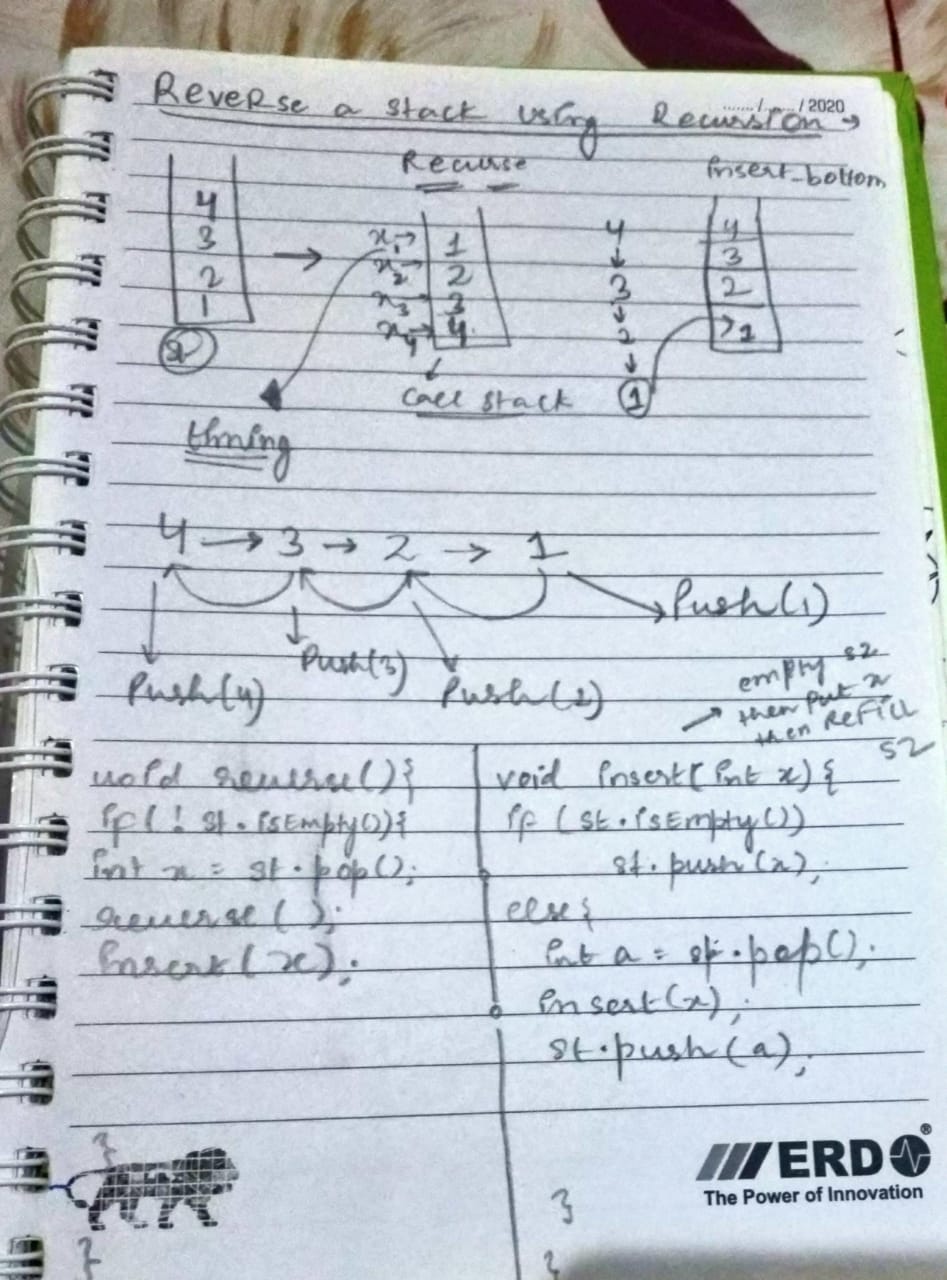 Reverse a stack using Recursion →
......./......./2020
Recurse
insert_bottom
4
3
2
1
x1→ 1
x2→ 2
x3→ 3
x4→ 4
4
↓
3
↓
2
↓
1
4
3
2
1
st
call stack
timing
4 → 3 → 2 → 1
Push(1)
Push(3)
Push(4)
Push(2)
empty s2
then put x
then Refill
s2
void reverse(){
if(! st.isEmpty()){
int x = st.pop();
reverse( );
insert(x);
}
}
void insert(int x){
if (st.isEmpty())
st.push(x);
else{
int a = st.pop();
insert(x);
st.push(a);
}
}
ERD®
The Power of Innovation